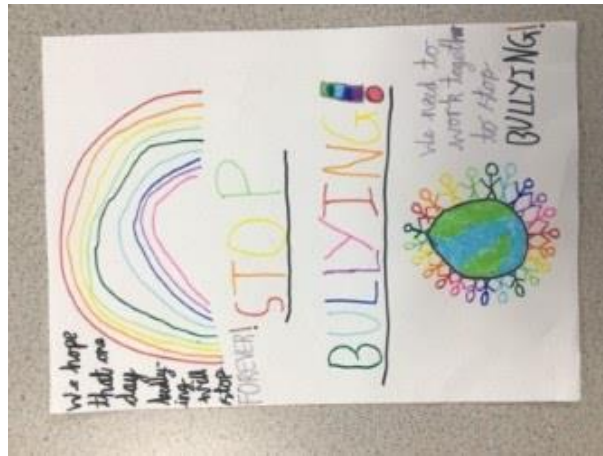 We hope
that one
day
bully-
ing
will
stop
FOREVER!
STOP
BULLYING!
We need to
work together
to stop
BULLYING!